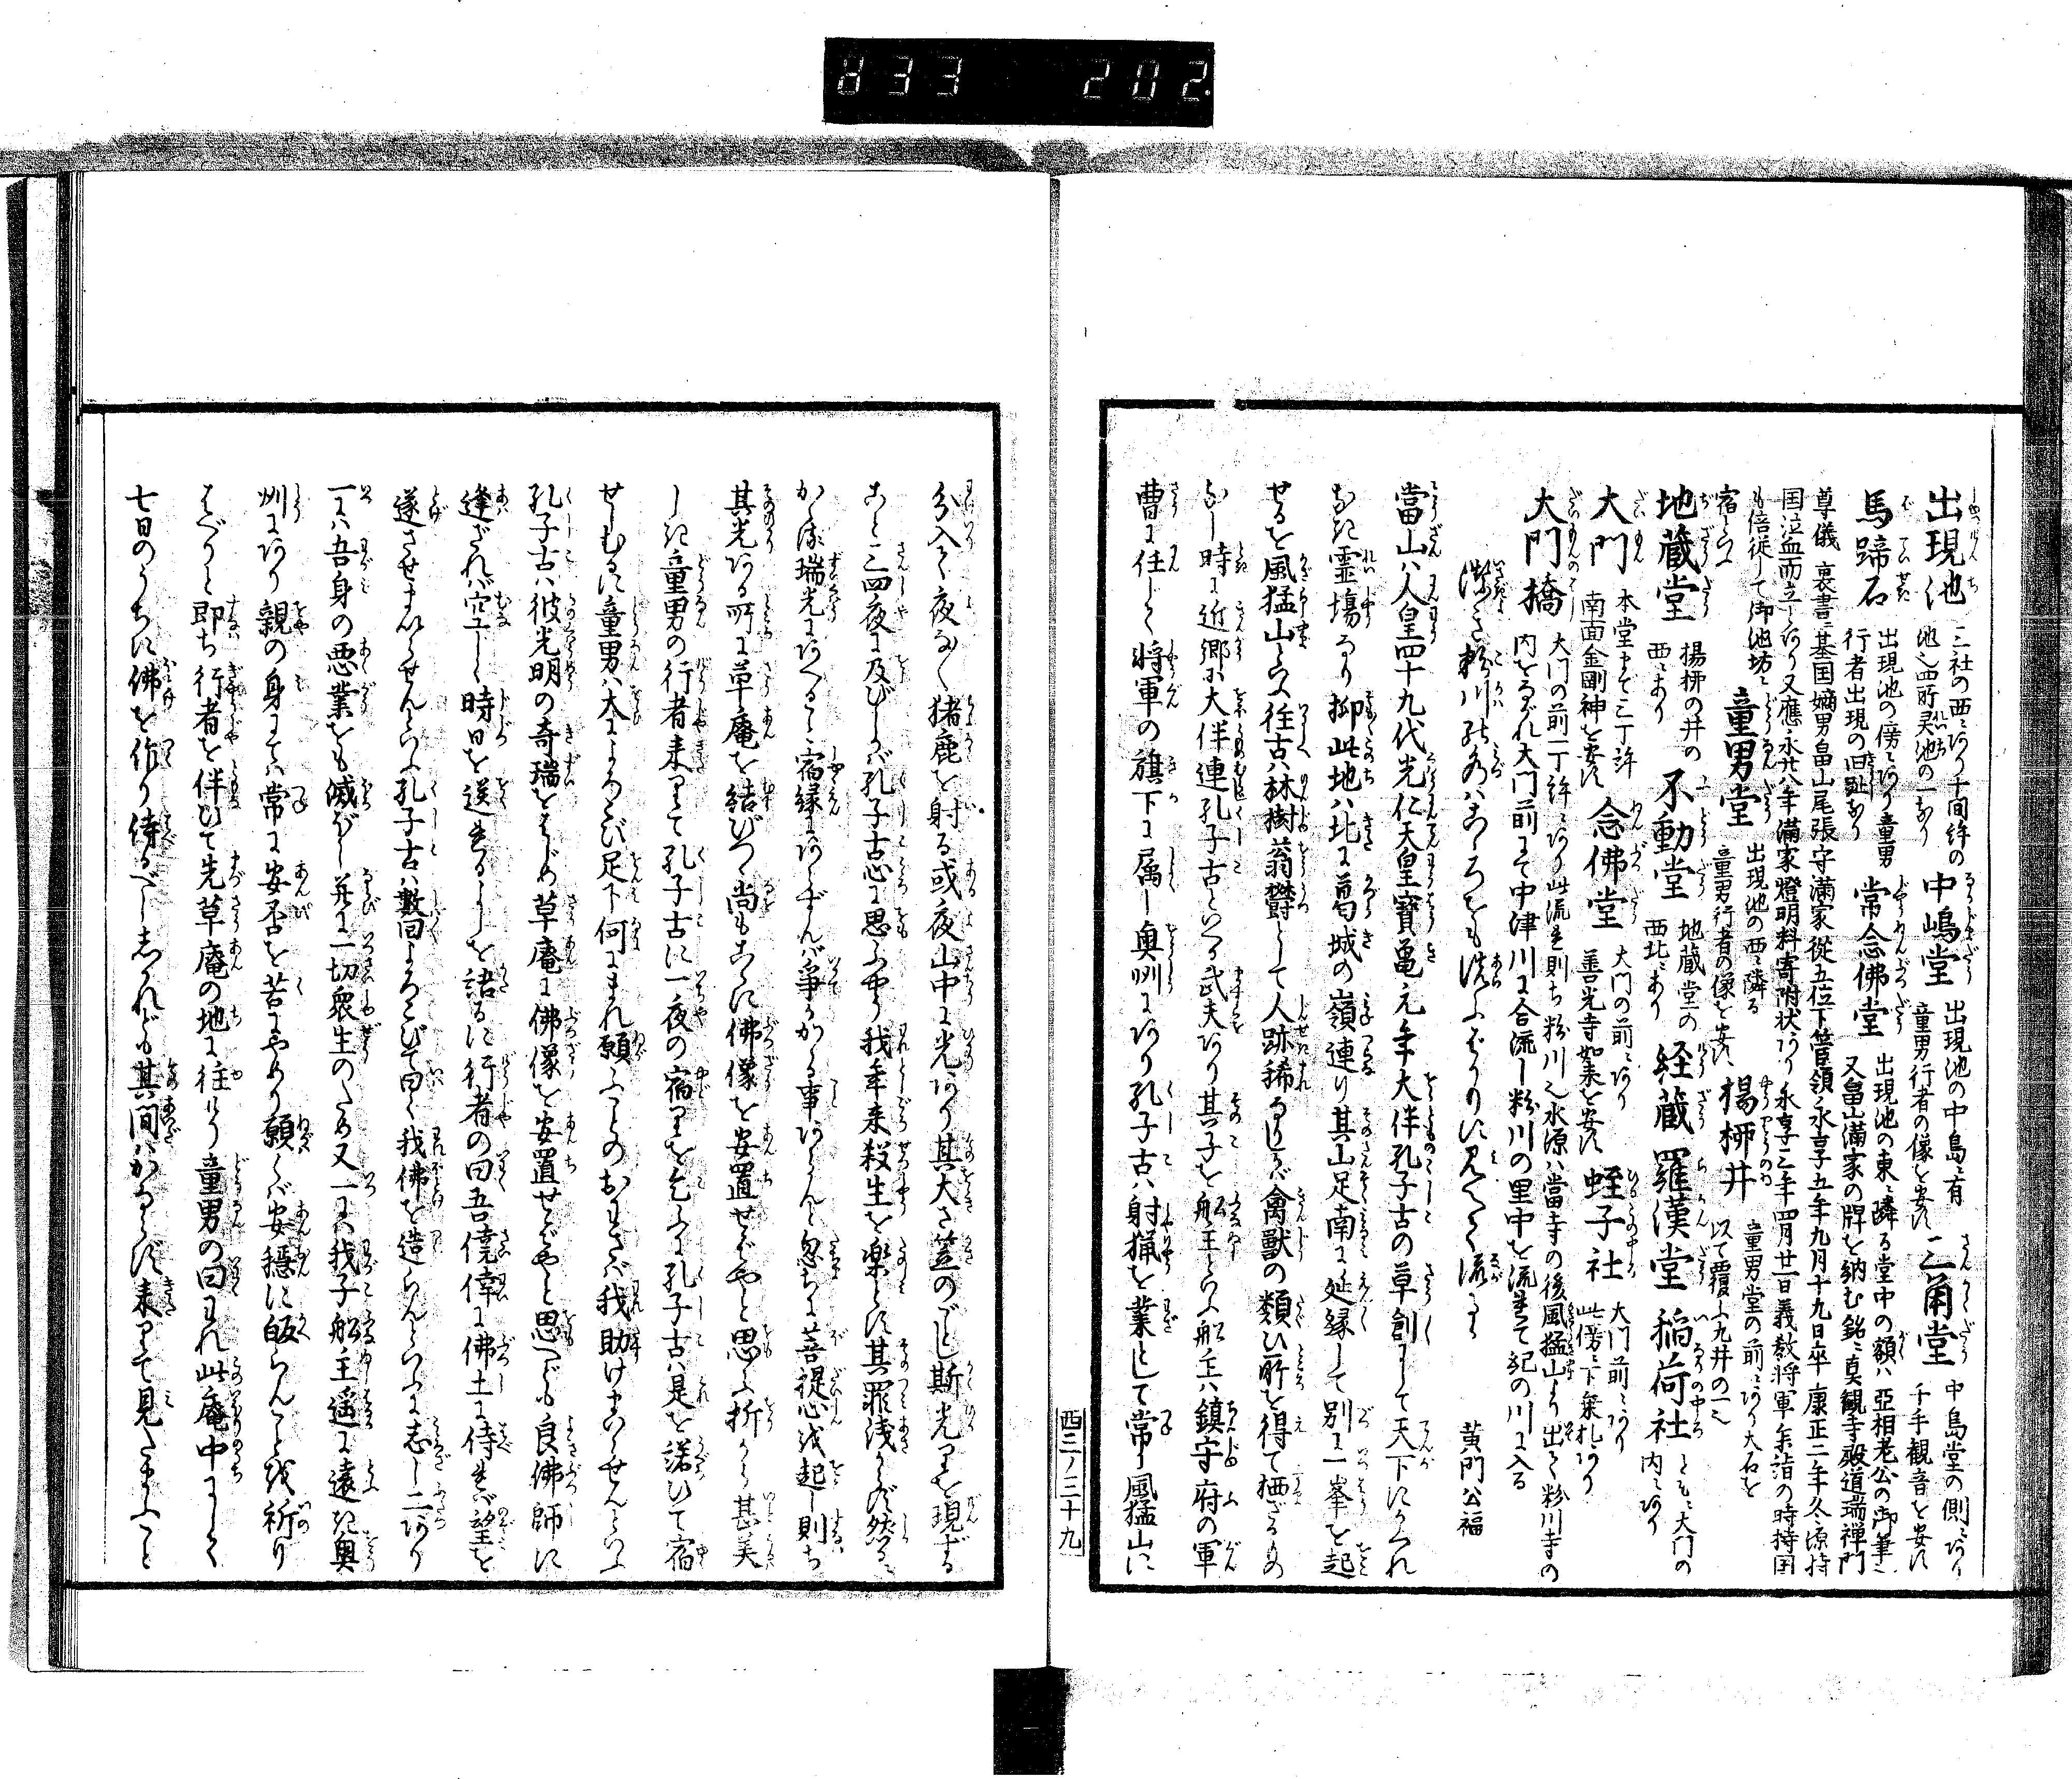 出現池 三社の西ニあり十間許の
池也四所灵池の一なり
中嶋堂 出現池の中島ニ有
童男行者の像を安ず
三角堂 中島堂の側ニあり
千手観音を安ず
馬蹄石 出現池の傍ニあり童男
行者出現の旧趾なり
常念佛堂 出現池の東ニ隣る堂中の額ハ亞相老公の御筆也
又畠山満家の牌を納む銘ニ真観寺殿道瑞禅門
尊儀 裏書ニ基国嫡男畠山尾張守満家従五位下管領永享五年九月十九日卒康正二年冬源持
国泣血而立しとあり又應永廿八年満家燈明料寄附状あり永享三年四月廿一日義教将軍参詣の時持国
も倍従して御池坊ニ
宿しといふ
童男堂 出現池の西ニ隣る
童男行者の像を安ず
楊桺井 童男堂の前ニあり大石を
以て覆ふ九井の一也
地蔵堂 楊桺の井の
西ニあり
不動堂 地蔵堂の
西北ニあり
経蔵 羅漢堂 稲荷社 ともニ大門の
内ニあり
大門 本堂まで三丁許
南面金剛神を安ず
念佛堂 大門の前ニあり
善光寺如来を安ず
蛭子社 大門前ニあり
此傍ニ下乗札あり
大門橋 大門の前一丁許ニあり此流を則ち粉川也水源ハ當寺の後風猛山より出て粉川寺の
内をながれ大門前にて中津川に合流し粉川の里中を流れて紀の川に入る
粉川 こゝろをも洗ふばかりに 流 黄門公福
當山ハ人皇四十九代光仁天皇寶亀元年大伴孔子古の草創にして天下にかくれ
なき霊場なり抑此地ハ北に葛城の嶺連り其山足南に延縁して別に一峯を起
せるを風猛山といふ往古ハ林樹蓊欝として人跡稀なりしが禽獣の類ひ所を得て栖ざるもの
なし時に近郷に大伴連孔子古といへる武夫あり其子を船主といふ船主ハ鎮守府の軍
曹に任じて将軍の旗下に属し奥州にあり孔子古ハ射猟を業として常に風猛山に
西三ノ三十九
分入て夜な〳〵猪鹿を射る或夜山中に光あり其大さ笠のごとし斯光りを現ずる
こと三四夜に及びしが孔子古心に思ふやう我年来殺生を楽とす其罪浅からず然るに
かゝる瑞光にあへること宿縁にあらずんバ争かかゝる事あらんと忽ちに菩提心を起し則ち
其光ある所に草庵を結びつゝ尚もこゝに佛像を安置せばやと思ふ折から甚美
しき童男の行者来りて孔子古に一夜の宿りを乞ふに孔子古ハ是を諾ひて宿
せしむるに童男ハ大によろこび足下何にまれ願ふことのおはさバ我助けまゐらせんといふ
孔子古ハ彼光明の奇瑞をはじめ草庵に佛像を安置せばやと思へども良佛師に
逢ざれバ空しく時日を送れるよしを語るに行者の曰吾僥倖に佛士に侍れバ望を
遂させまゐらせんといふ孔子古ハ數回よろこびて曰く我佛を造らんといふに志し二あり
一にハ吾身の悪業をも滅ぼし并に一切衆生のため又一にハ我子船主遥に遠き奥
州にあり親の身にてハ常に安否を苦にやめり願くバ安穏に皈らんことを祈り
はべりと即ち行者を伴ひて先草庵の地に往けり童男の曰われ此庵中にして
七日のうちに佛を作り侍るべししかれども其間ハかならず来りて見たまふこと